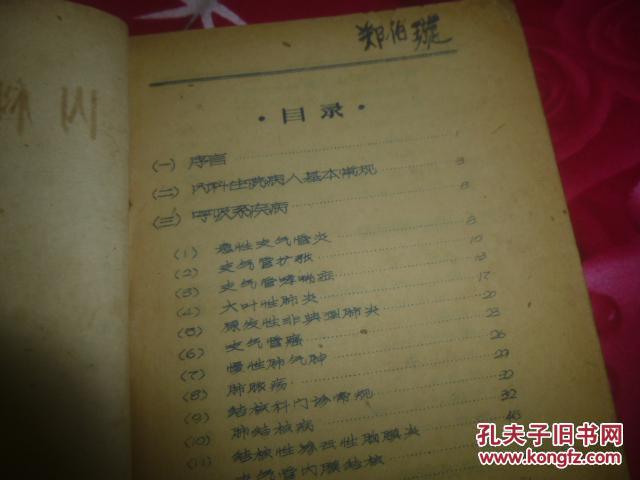 郑伯璇
·目录·
(一) 序言 1
(二) 内科住院病人基本常规 3
(三) 呼吸系疾病 8
(1) 急性支气管炎 8
(2) 支气管扩张 10
(3) 支气管哮喘症 13
(4) 大叶性肺炎 17
(5) 原发性非典型肺炎 20
(6) 支气管癌 23
(7) 慢性肺气肿 26
(8) 肺脓疡 29
(9) 结核科门诊常规 32
(10) 肺结核病 32
(11) 结核性渗出性胸膜炎 40
支气管内膜结核
孔夫子旧书网
www.kongfz.com